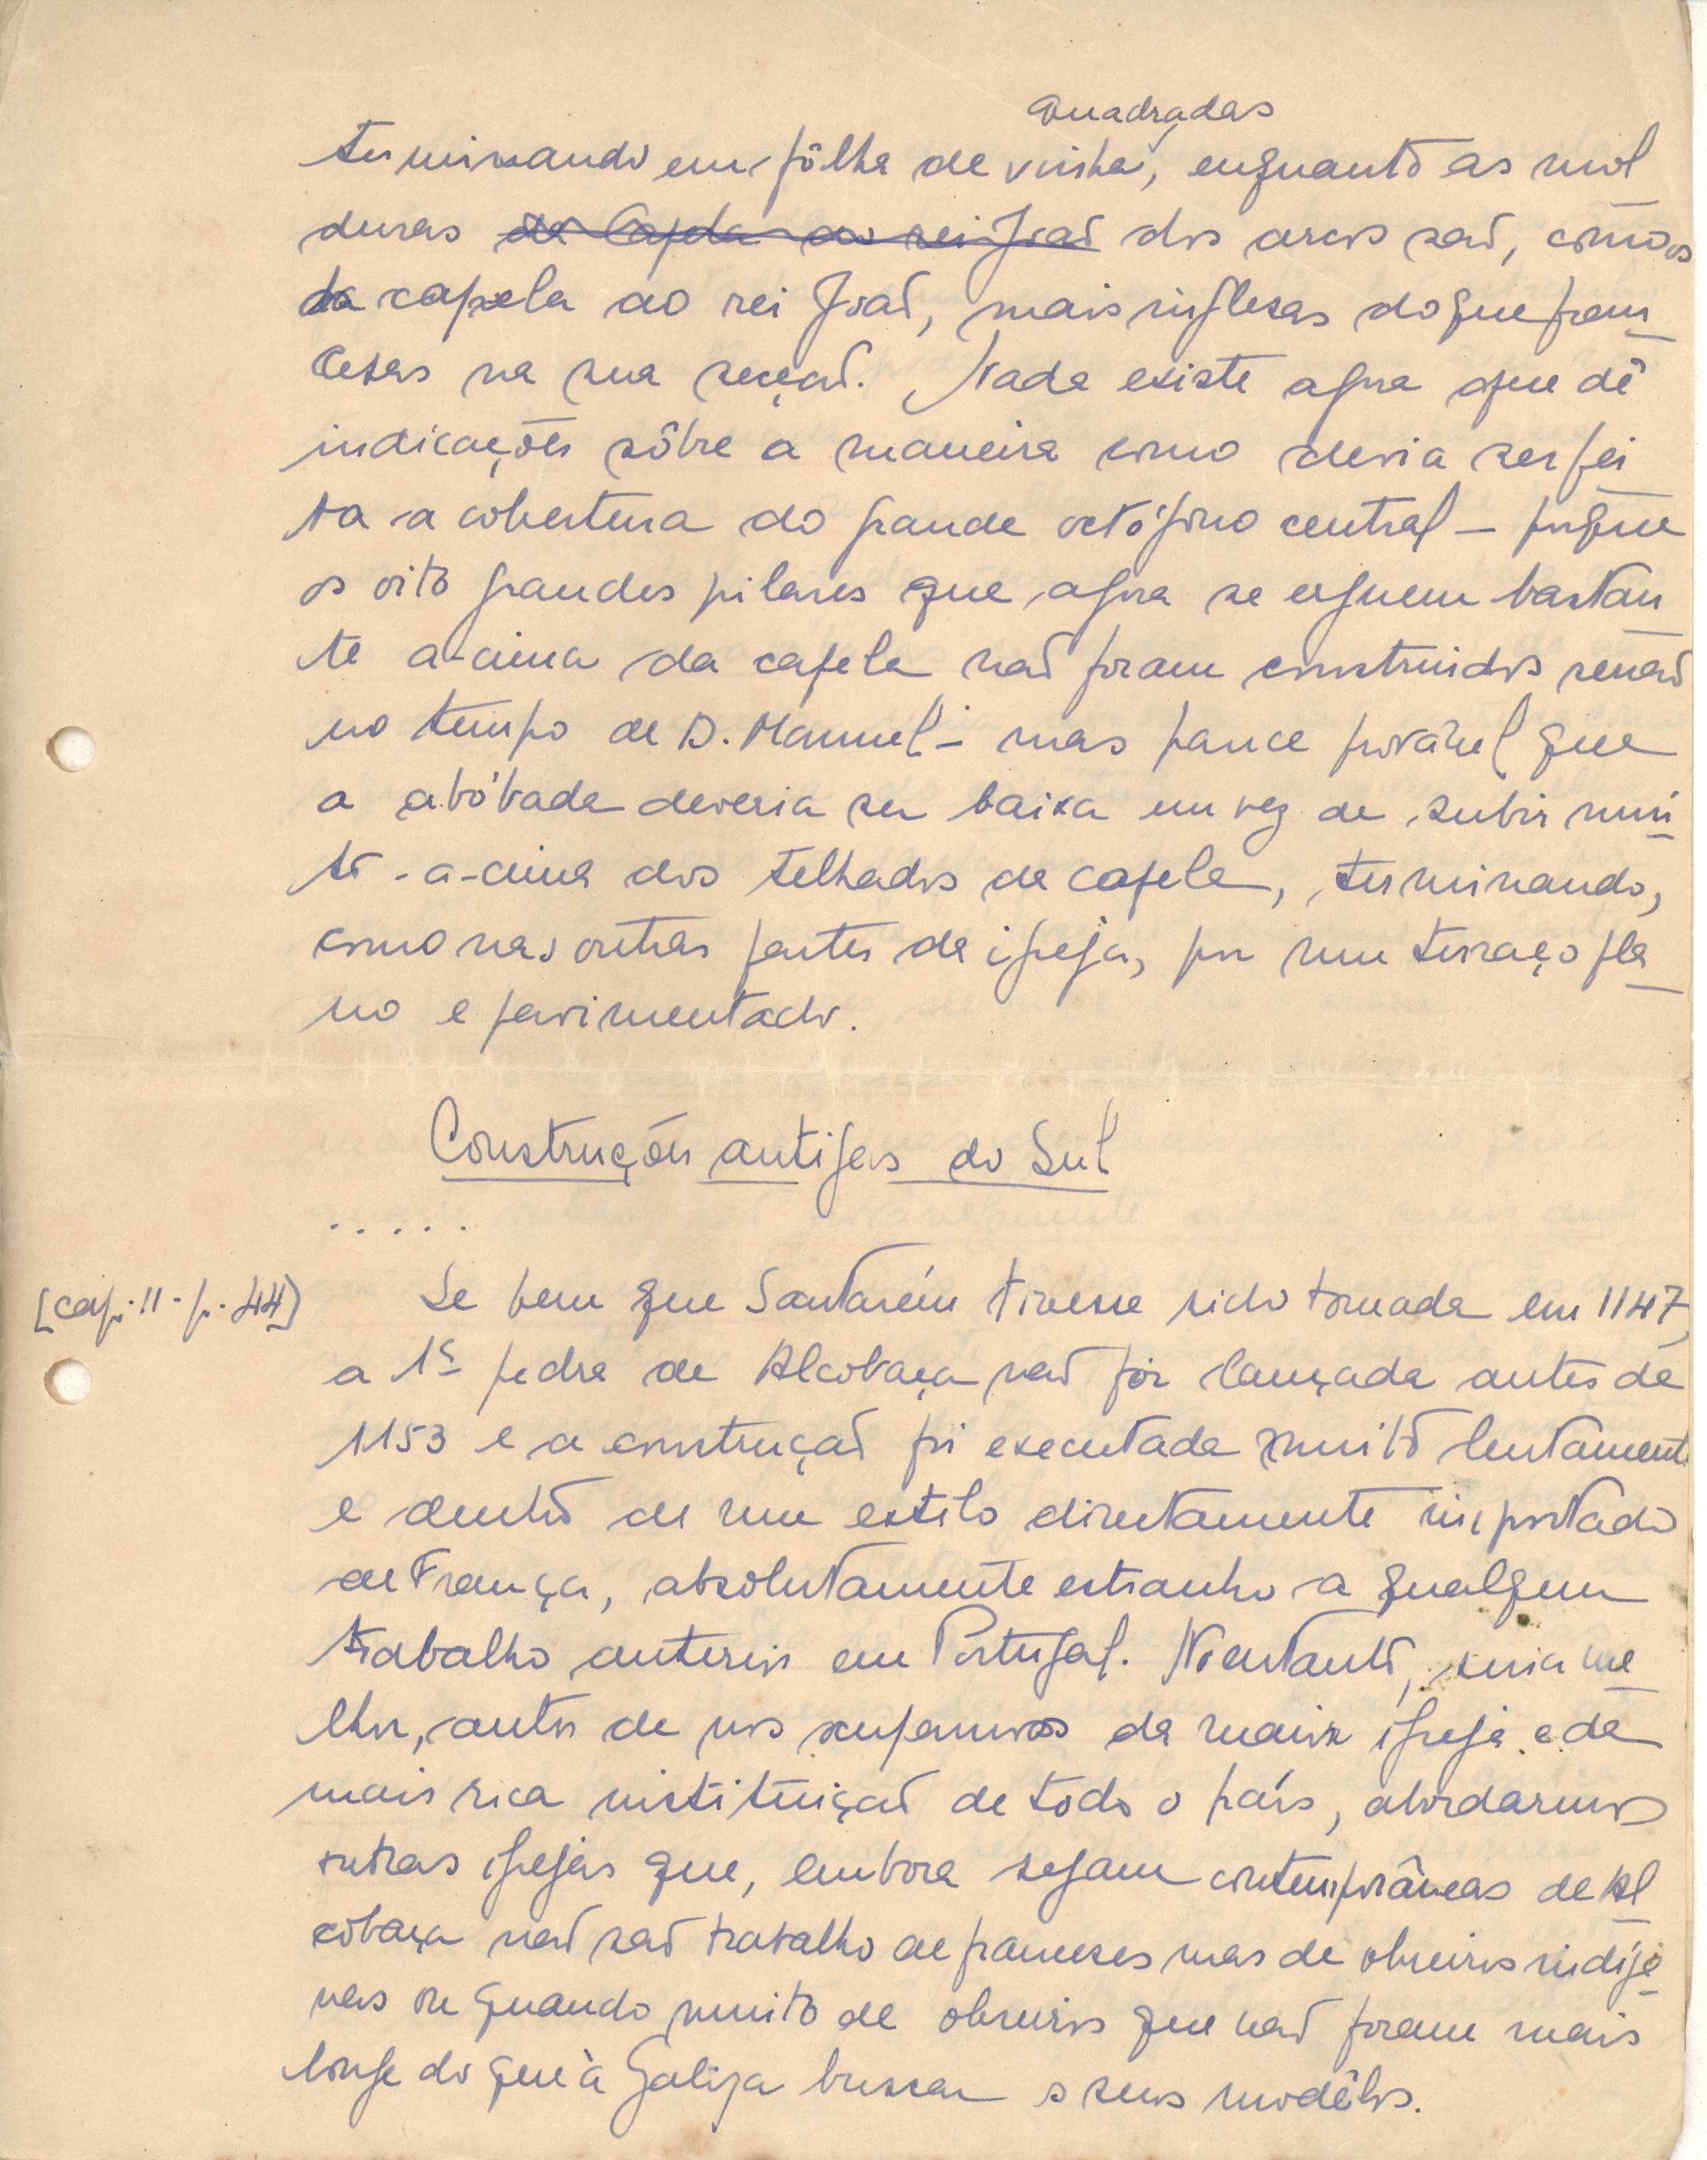 quadradas
terminando em fôlha de vinha, enquanto as mol
duras da Capela do rei João dos arcos são, como os
da capela do rei João, mais inglesas do que fran
cesas na sua secção. Nada existe agora que dê
indicações sôbre a maneira como devia ser fei
ta a cobertura do grande octógino central — porque
os oito grandes pilares que agora se erguem bastan
te a-cima da capela não foram construidos senão
no tempo de D. Manuel — mas parece provável que
a abóbada deveria ser baixa em vez de subir mui
to a-cima dos telhados da capela, terminando,
como nas outras partes da igreja, por um terraço pla
no e pavimentado.
Construções antigas do Sul
. . . . .
[cap. II - p. 44]
Se bem que Santarém tivesse sido tomada em 1147,
a 1ª pedra de Alcobaça não foi lançada antes de
1153 e a construção foi executada muito lentamente
e dentro de um estilo directamente importado
de França, absolutamente estranho a qualquer
trabalho anterior em Portugal. No entanto, seria me
lhor, antes de nos ocuparmos da maior igreja e da
mais rica instituição de todo o país, abordarmos
outras igrejas que, embora sejam contemporâneas de Al
cobaça não são trabalho de franceses mas de obreiros indíge
nas ou quando muito de obreiros que não foram mais
longe do que à Galiza buscar os seus modêlos.